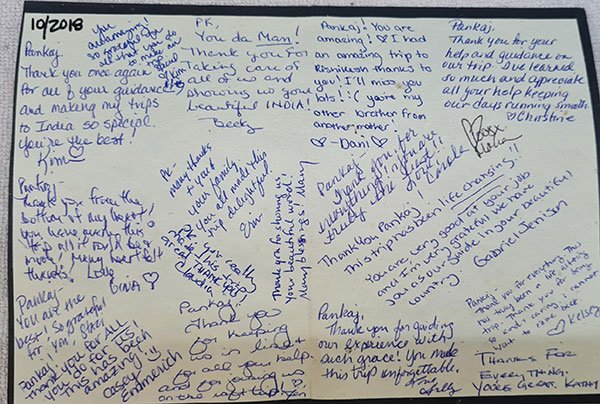 10/2018
Pankaj,
Thank you once again
for all of your guidance
and making my trips
to India so special.
You're the best!
Kim ♡
you are
amazing!
so grateful for
all that you do
to make
Kim
P.K,
You da Man!
Thank you for
Taking care of
all of us and
showing us your
beautiful INDIA!
Becky
Pankaj! You are
amazing! ♡ I had
an amazing trip to
Rishikesh thanks to
you! I'll miss you
lots! (you're my
other brother from
another mother!
♡ -Dani ♡
Pankaj
Thank you for your
help and guidance on
our trip. I've learned
so much and appreciate
all your help keeping
our days running smooth.
♡ Christine
Pankaj-
Thank you from the
bottom of my heart!
you have made this
trip all it could be &
more! Many heartfelt
thanks! Love
Gina ♡
PK-
many thanks
to you &
your family.
You all made this
trip delightful!
Erin
PK You really
made this
trip
THANK YOU
Claudia
Thank you for showing us
your beautiful world!
Many blessings!
Pankaj-
Thank you for
everything! You are
truly the best!!
Love Carola
Thank You Pankaj
This trip has been life changing!!
You are very good at your job
and I'm very grateful we have
you as our guide in your beautiful
country.
Gabriel Jenison
Pankaj-
You are the
best! So grateful
for you,
Pankaj,
Thank you for ALL
you do for us,
this has been
amazing!
Casey
Emmerich
Pankaj-
Thank you
for keeping
us in line &
for all your help.
and for joining us
on the
Pankaj,
Thank you for guiding
our experience with
such grace! You made
this trip unforgettable.
Pankaj-
Thank you for everything. This
has truly been a life altering
trip. Thank you for being
so kind & caring. I cannot
wait to come back
♡ Kelsey
Thanks for
Everything.
You're Great. Kathy